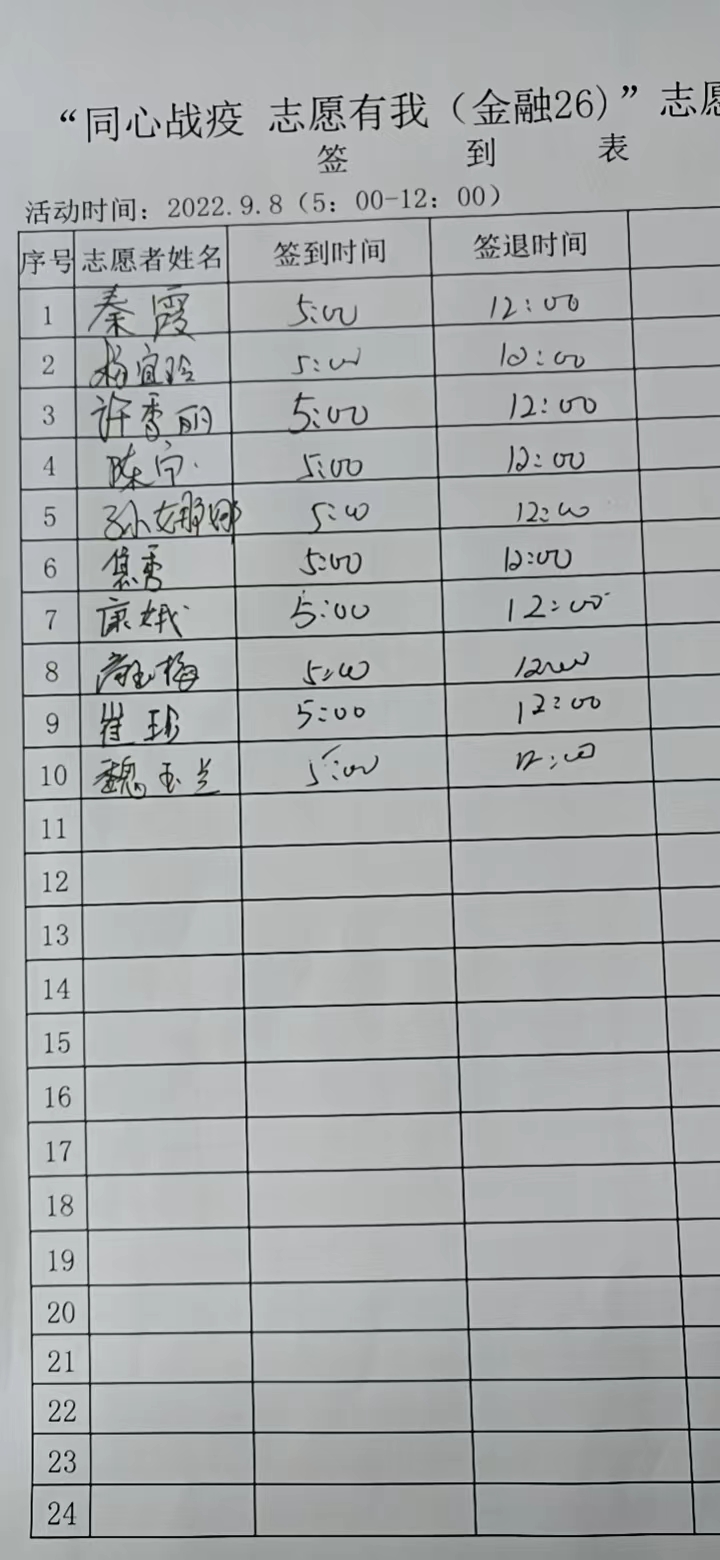 “同心战疫 志愿有我（金融26)”志愿
签 到 表
活动时间：2022.9.8（5：00-12：00）
序号 志愿者姓名 签到时间 签退时间
1 秦霞 5:00 12:00
2 杨宜玲 5:00 10:00
3 许秀丽 5:00 12:00
4 陈宁 5:00 12:00
5 孙娜娜 5:00 12:00
6 焦秀 5:00 12:00
7 康娥 5:00 12:00
8 梅 5:00 12:00
9 崔 5:00 12:00
10 魏玉兰 5:00 12:00
11
12
13
14
15
16
17
18
19
20
21
22
23
24